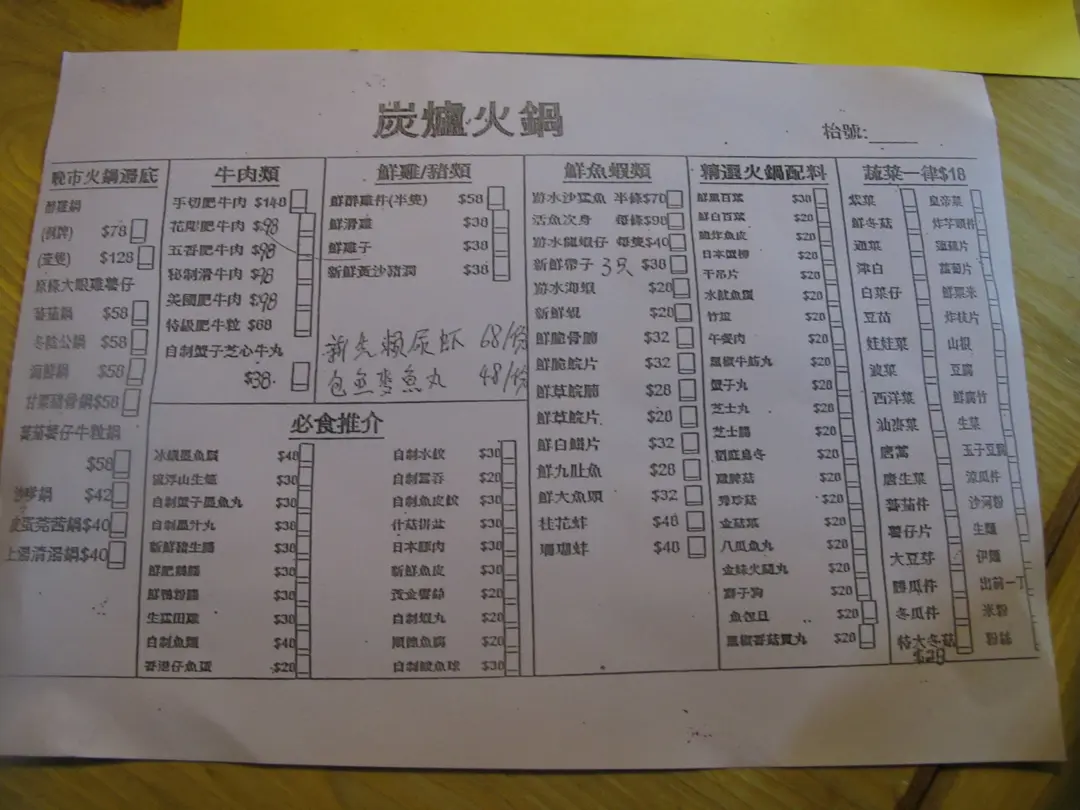 炭爐火鍋
枱號:
晚市火鍋湯底
醉雞鍋
(例牌) $78
(壹隻) $128
原條大眼雞薯仔
蕃茄鍋 $58
冬陰公鍋 $58
海鮮鍋 $58
甘栗豬骨鍋 $58
蕃茄薯仔牛粒鍋
$58
沙爹鍋 $42
皮蛋芫茜鍋 $40
上湯清湯鍋 $40
牛肉類
手切肥牛肉 $148
花開肥牛肉 $98
五香肥牛肉 $98
秘制滑牛肉 $98
美國肥牛肉 $98
特級肥牛粒 $68
自制蟹子芝心牛丸
$38
鮮雞/豬類
鮮群雞件(半隻) $58
鮮滑雞 $38
鮮雞子 $38
新鮮黃沙豬潤 $38
瀨尿虾 68/份
包魚麥魚丸 48/份
必食推介
冰鎮墨魚扇 $48
流浮山生蠔 $30
自制蟹子墨魚丸 $30
自制墨汁丸 $30
新鮮豬生腸 $30
鮮肥鵝腸 $30
鮮鴨粉腸 $30
生猛田雞 $30
自制魚麵 $40
香港仔魚蛋 $20
自制水餃 $30
自制雲吞 $20
自制魚皮餃 $30
什菇拼盆 $30
日本豚肉 $30
新鮮魚皮 $30
黃金響鈴 $20
自制蝦丸 $20
順德魚腐 $20
自制鯪魚球 $30
鮮魚蝦類
游水沙猛魚 半條$70
活魚次身 每條$98
游水龍蝦仔 每隻$40
新鮮帶子 3只 $38
游水海蝦 $28
新鮮蜆 $28
鮮脆骨腩 $32
鮮脆鯇片 $32
鮮草鯇腩 $28
鮮草鯇片 $28
鮮白鱔片 $32
鮮九肚魚 $28
鮮大魚頭 $32
桂花蚌 $48
珊瑚蚌 $48
精選火鍋配料
鮮黑百葉 $30
鮮白百葉 $20
脆炸魚皮 $20
日本蟹柳 $20
干吊片 $20
水魷魚鬚 $20
竹笙 $20
午餐肉 $20
黑椒牛筋丸 $20
蟹子丸 $20
芝士丸 $20
芝士腸 $20
$20
雞髀菇 $20
秀珍菇 $20
金菇菜 $20
八爪魚丸 $20
金絲火腿丸 $20
獅子狗 $20
魚包旦 $20
黑椒香菇貢丸 $20
蔬菜一律$18
紫菜
鮮冬菇
通菜
津白
白菜仔
豆苗
娃娃菜
菠菜
西洋菜
油麥菜
唐蒿
唐生菜
蕃茄件
薯仔片
大豆芽
勝瓜件
冬瓜件
特大冬菇
$28
皇帝菜
炸芋頭件
蓮藕片
蘿蔔片
鮮粟米
炸枝片
山根
豆腐
鮮腐竹
生菜
玉子豆腐
涼瓜件
沙河粉
生麵
伊麵
出前一丁
米粉
粉絲